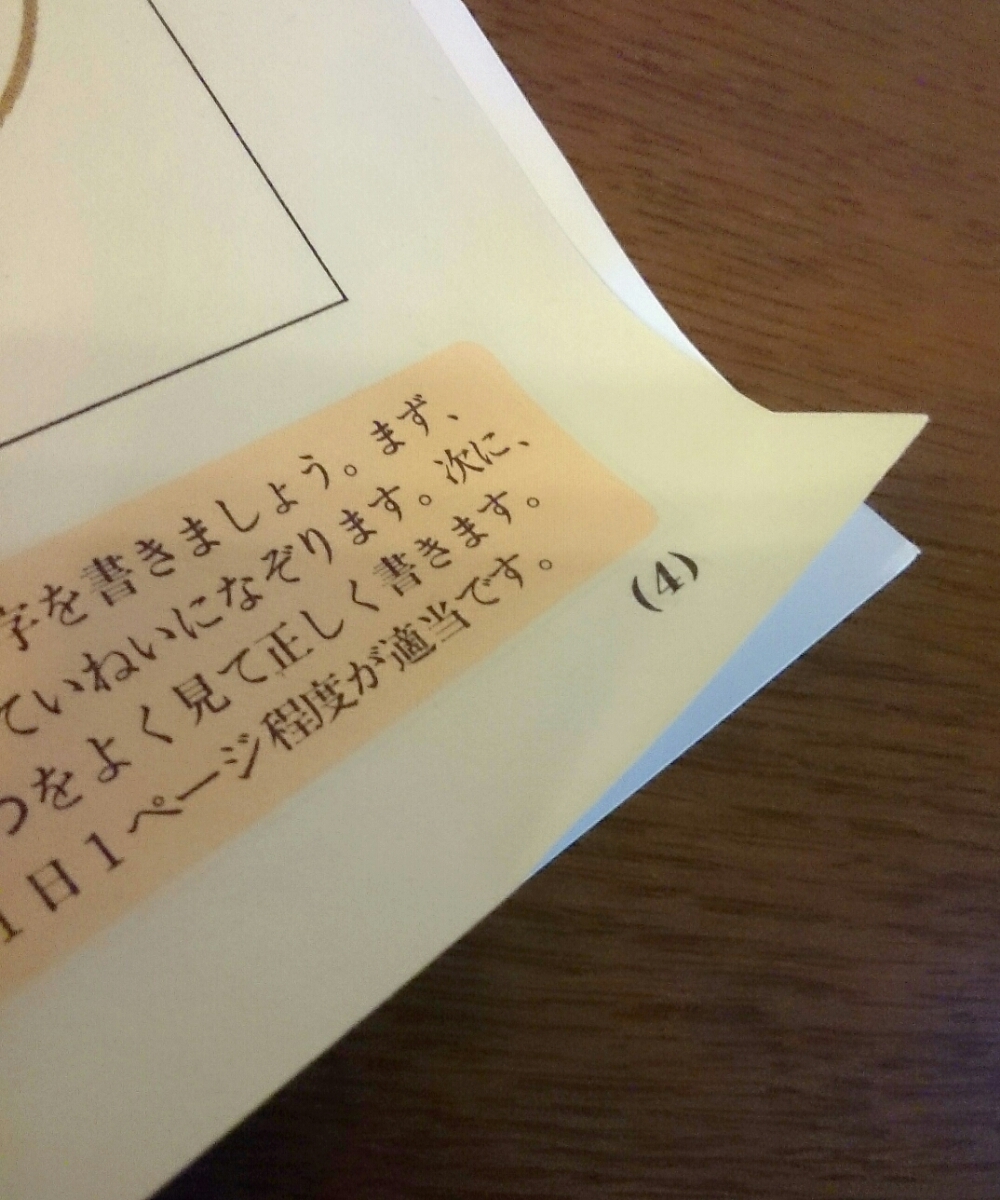 字を書きましょう。まず、
ていねいになぞります。次に、
つをよく見て正しく書きます。
1日1ページ程度が適当です。
(4)